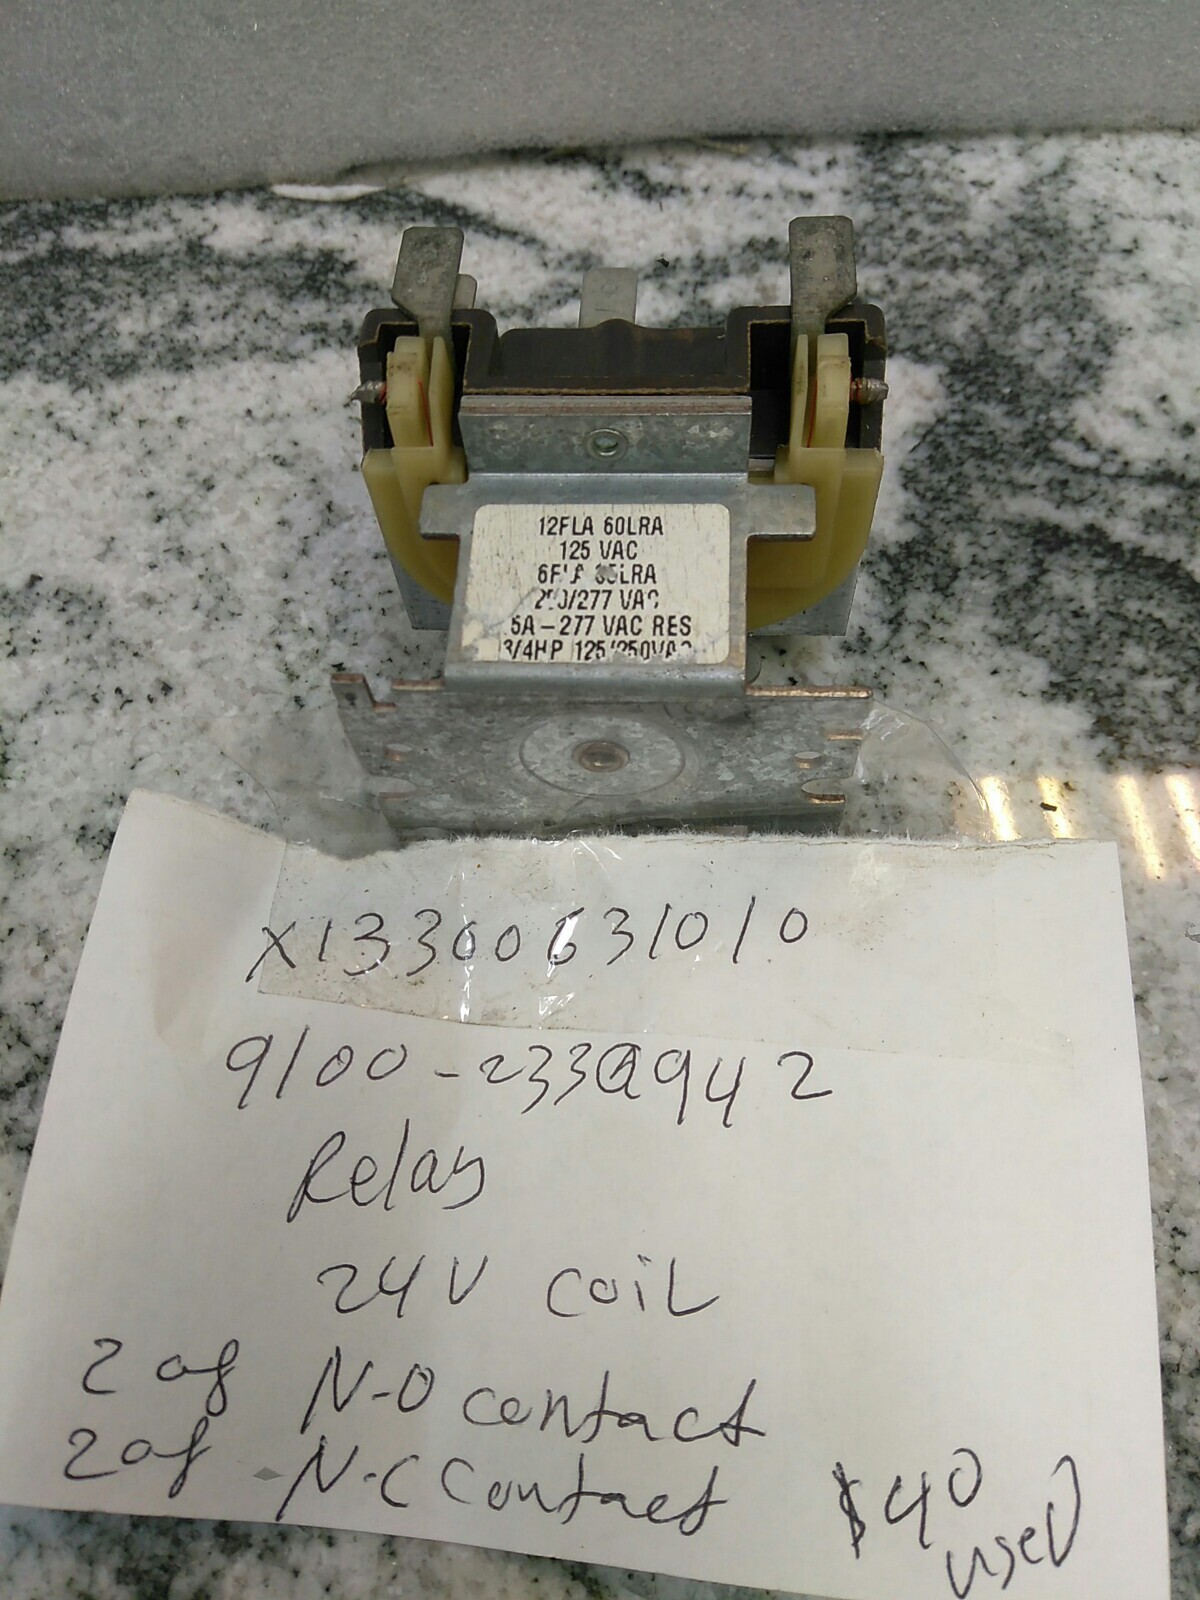 12FLA 60LRA
125 VAC
6FLA 35LRA
250/277 VAC
5A-277 VAC RES
3/4HP 125/250VAC
X13300631010
9100-233Q942
Relay
24V coiL
2 of N-O contact
2 of -N-C Contact
$40
used